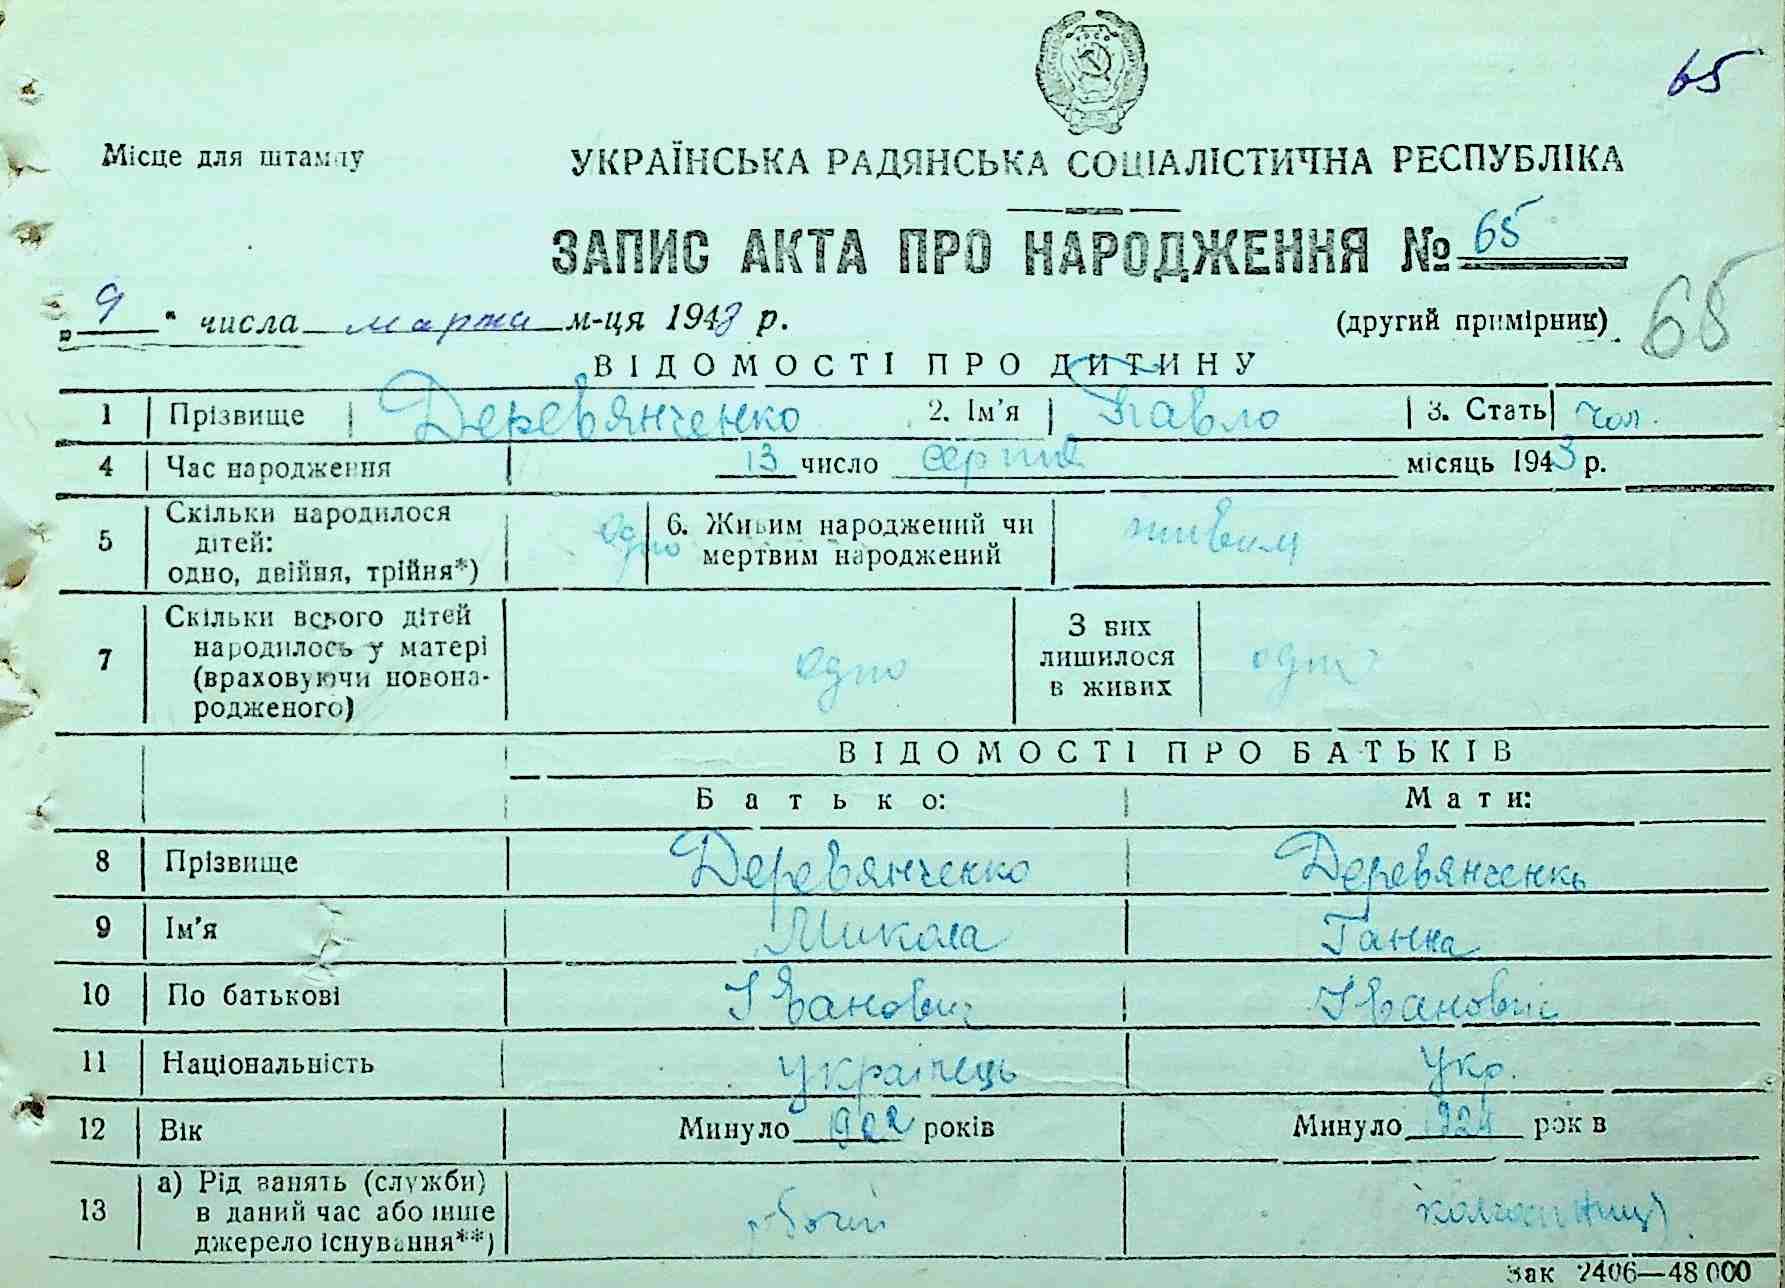 65
Місце для штампу
УКРАЇНСЬКА РАДЯНСЬКА СОЦІАЛІСТИЧНА РЕСПУБЛІКА
ЗАПИС АКТА ПРО НАРОДЖЕННЯ № 65
„ 9 " числа марта м-ця 1943 р.
(другий примірник) 65
ВІДОМОСТІ ПРО ДИТИНУ
1 Прізвище Деревянченко 2. Ім'я Павло 3. Стать чол.
4 Час народження 13 число серпня місяць 1943 р.
5 Скільки народилося дітей: одно, двійня, трійня*) одно 6. Живим народжений чи мертвим народжений живим
7 Скільки всього дітей народилось у матері (враховуючи новонародженого) одно З них лишилося в живих одно
ВІДОМОСТІ ПРО БАТЬКІВ
Батько: Мати:
8 Прізвище Деревянченко Деревянченко
9 Ім'я Микола Ганна
10 По батькові Іванович Іванов
11 Національність українець Укр.
12 Вік Минуло 1922 років Минуло 1924 років
13 а) Рід занять (служби) в даний час або інше джерело існування**) робочий колгоспниця
Зак 2406—48 000